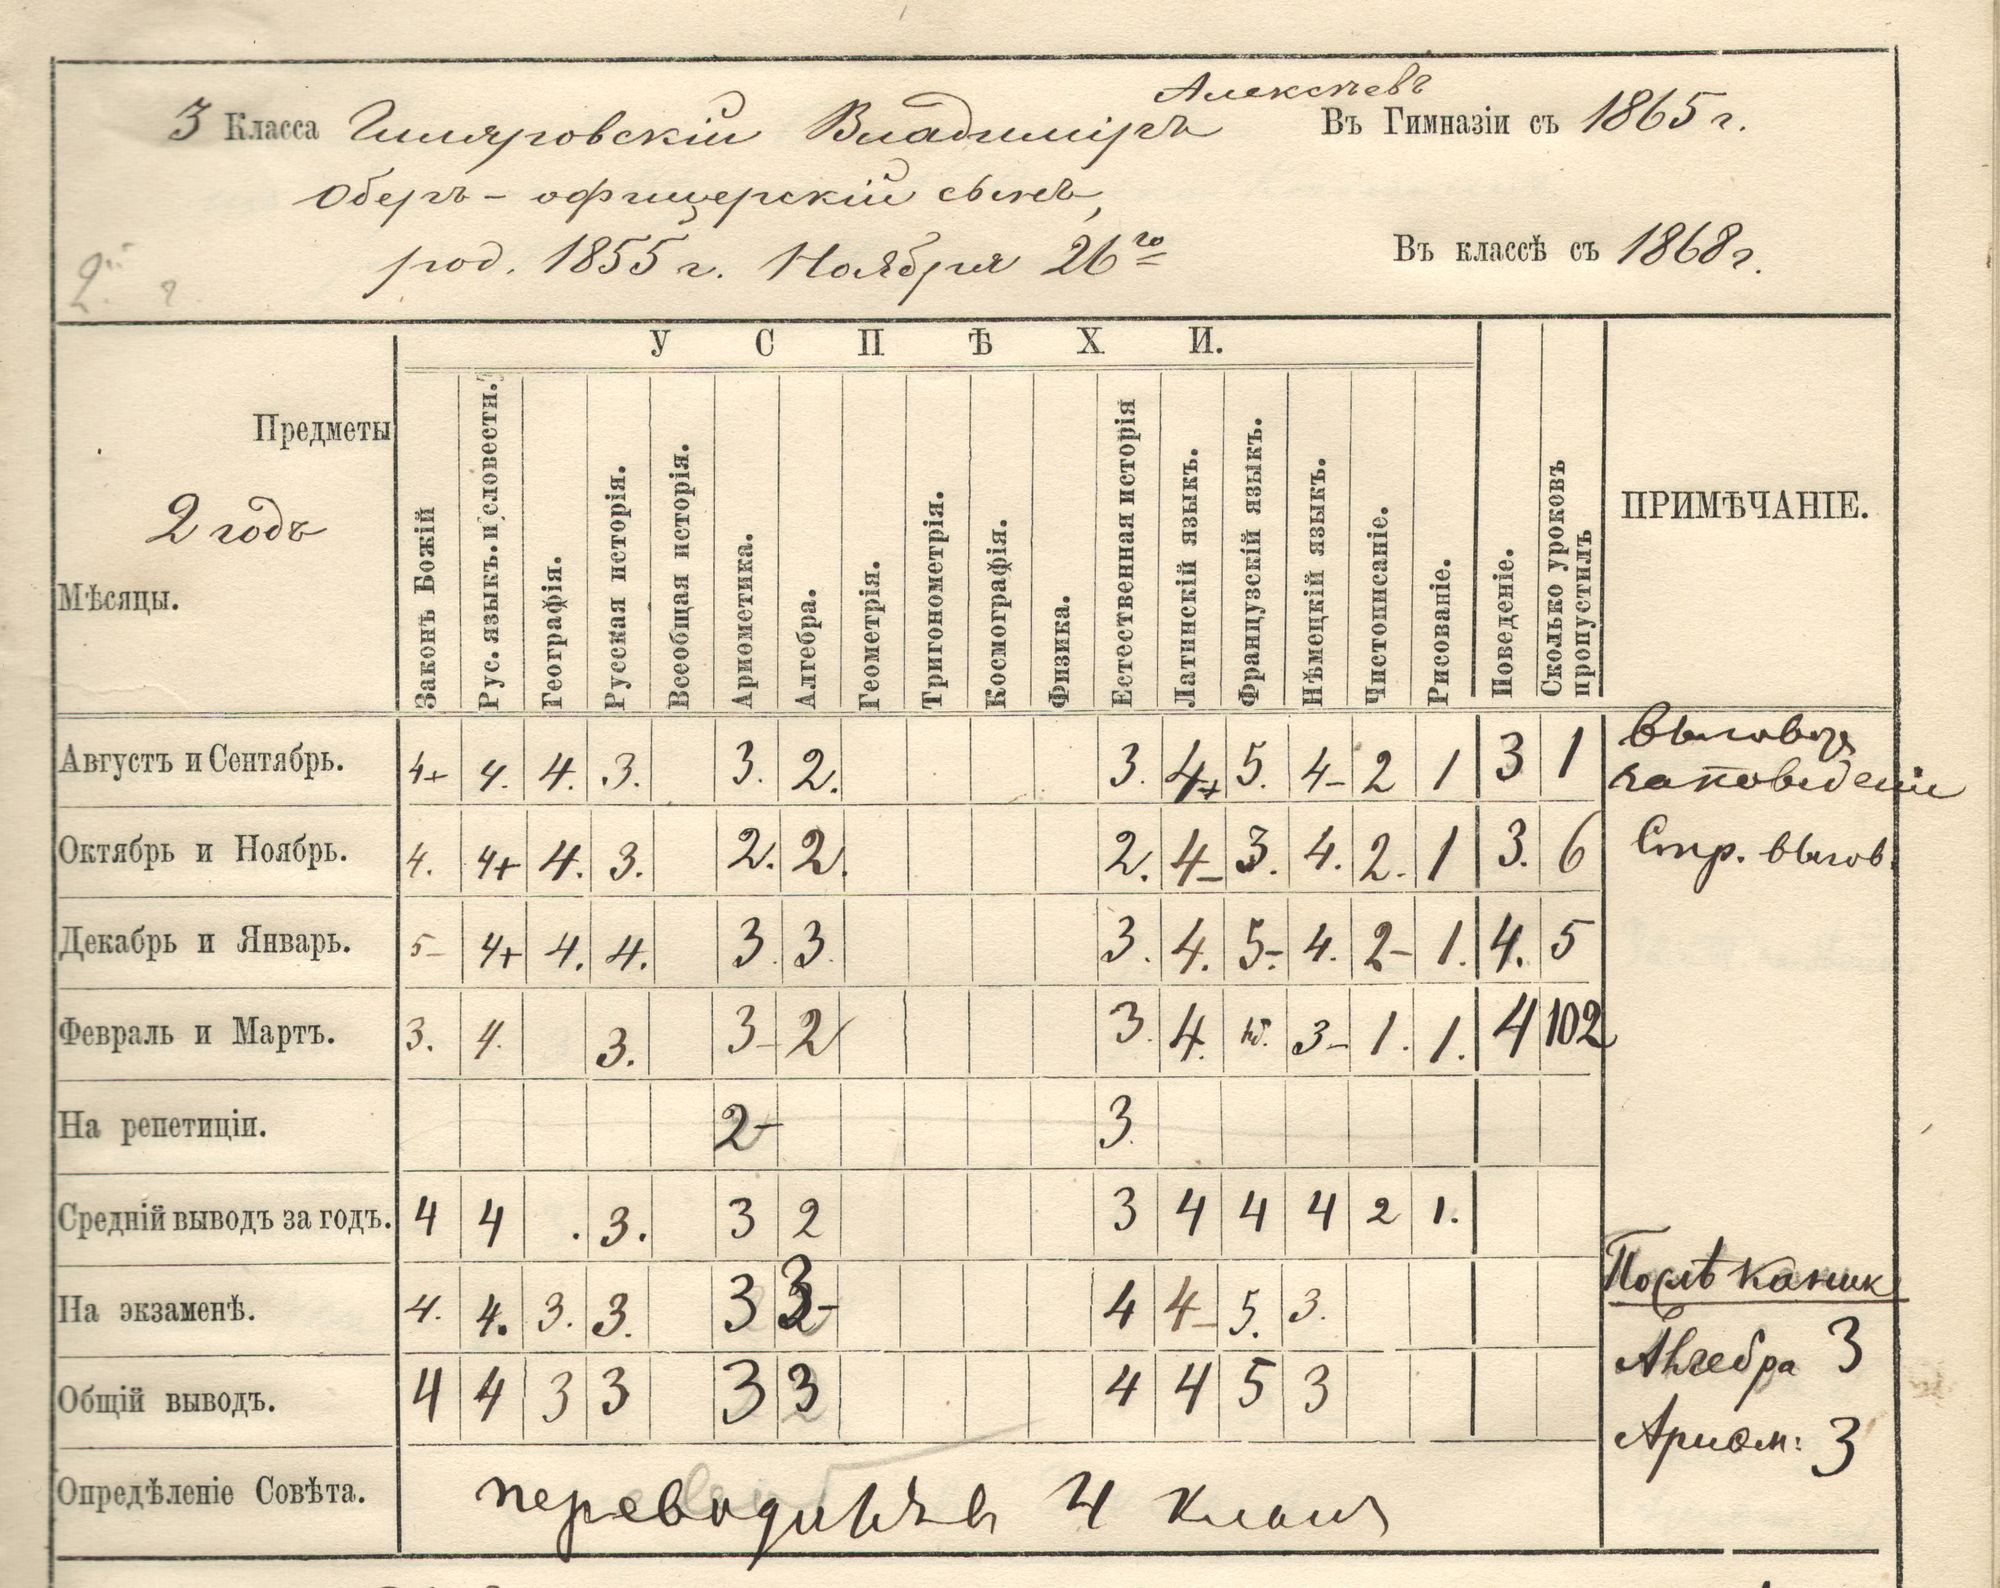 3 Класса Гиляровскій Владиміръ Алексѣевъ Въ Гимназіи съ 1865 г.
Оберъ-офицерскій сынъ,
род. 1855 г. Ноября 26го Въ классѣ съ 1868 г.
2й г.
УСПѢХИ.
Предметы
2 годъ
Мѣсяцы.
Законъ Божій
Рус. языкъ. и словестн.
Географія.
Русская исторія.
Всеобщая исторія.
Ариѳметика.
Алгебра.
Геометрія.
Тригонометрія.
Космографія.
Физика.
Естественная исторія
Латинскій языкъ.
Французскій языкъ.
Нѣмецкій языкъ.
Чистописаніе.
Рисованіе.
Поведеніе.
Сколько уроковъ
пропустилъ
ПРИМѢЧАНІЕ.
Августъ и Сентябрь. 4+ 4. 4. 3. 3. 2. 3. 4+ 5. 4- 2 1 3 1 выговоръ
за поведеніе
Октябрь и Ноябрь. 4. 4+ 4. 3. 2. 2. 2. 4- 3. 4. 2. 1 3. 6 Стр. выгов.
Декабрь и Январь. 5- 4+ 4. 4. 3. 3. 3. 4. 5-. 4. 2- 1. 4. 5
Февраль и Мартъ. 3. 4. 3. 3- 2 3. 4. нб. 3- 1. 1. 4 102
На репетиціи. 2- 3.
Средній выводъ за годъ. 4 4 . 3. 3 2 3 4 4 4 2 1.
На экзаменѣ. 4. 4. 3. 3. 3 3 4 4- 5. 3. Послѣ каник
Общій выводъ. 4 4 3 3 3 3 4 4 5 3 Алгебра 3
Ариѳм: 3
Опредѣленіе Совѣта. переводится въ 4 классъ